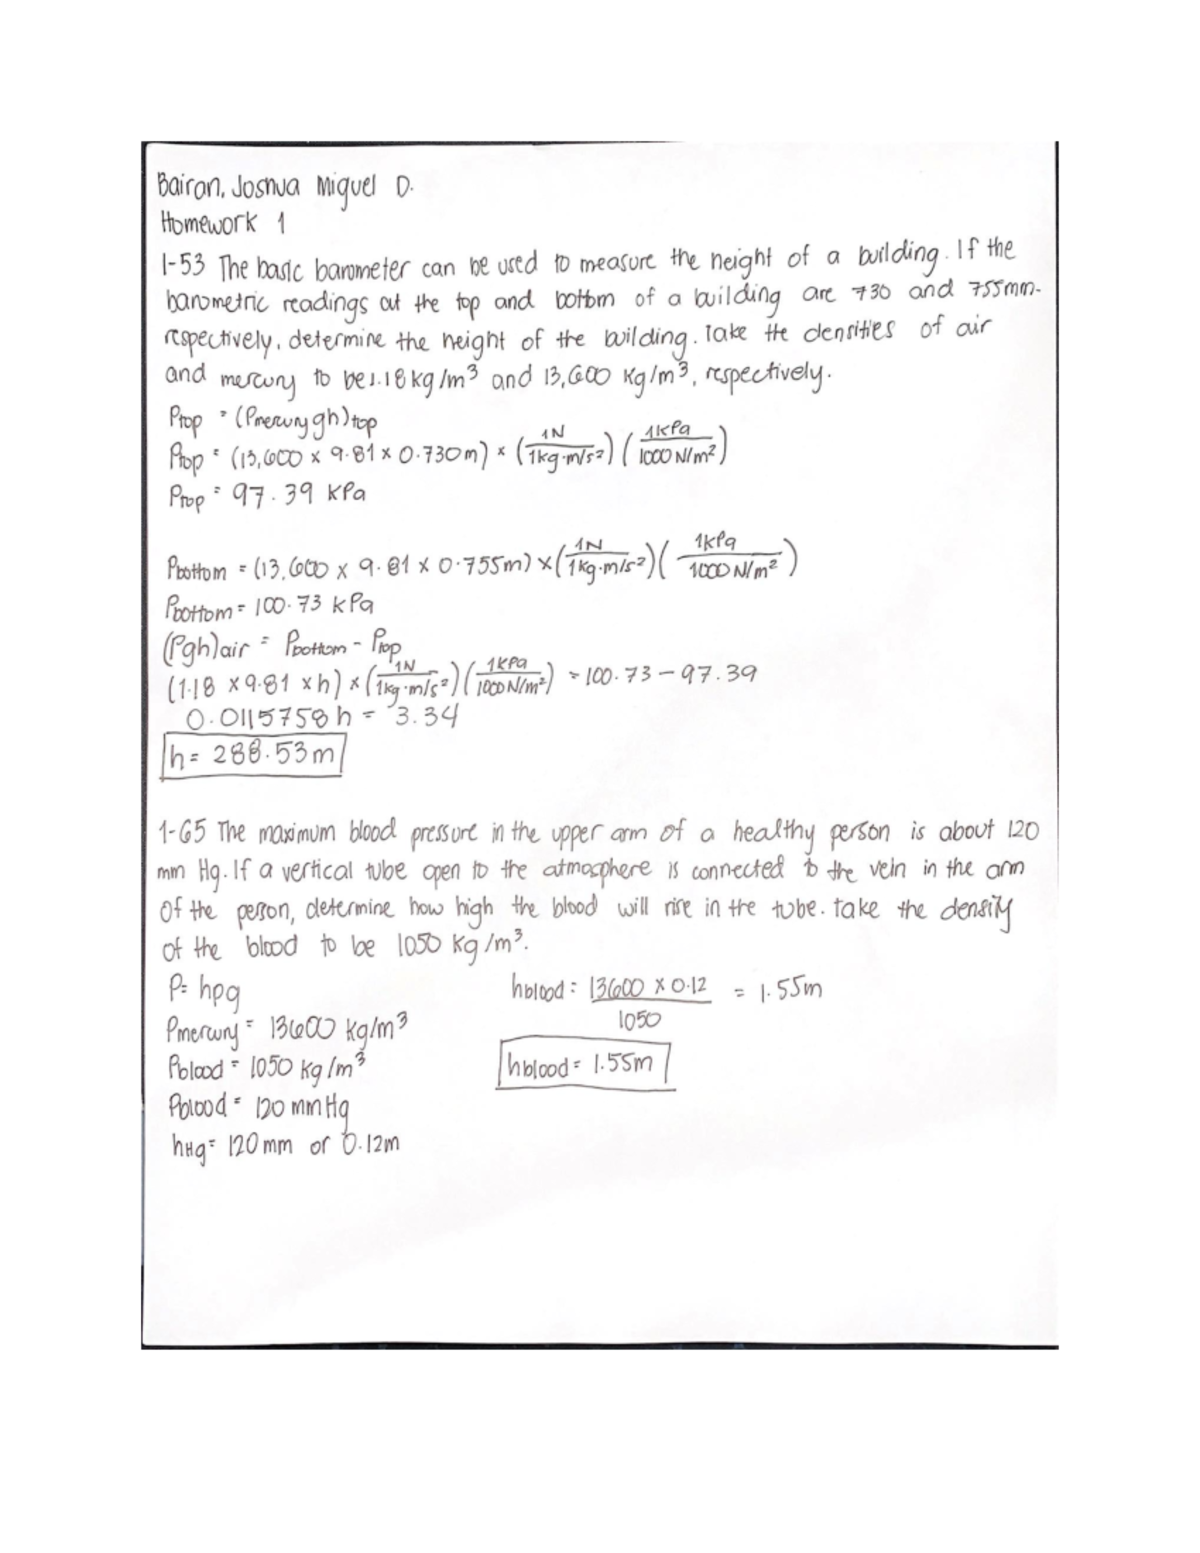 Bairan, Joshua Miguel D.
Homework 1
1-53 The basic barometer can be used to measure the height of a building. If the
barometric readings at the top and bottom of a building are 730 and 755mm.
respectively, determine the height of the building. Take the densities of air
and mercury to be 1.18 kg/m³ and 13,600 kg/m³, respectively.
Ptop = (Pmercury gh)top
Ptop = (13,600 x 9.81 x 0.730m) x (1N/1kg·m/s²)(1kPa/1000 N/m²)
Ptop = 97.39 kPa
Pbottom = (13,600 x 9.81 x 0.755m) x (1N/1kg·m/s²)(1kPa/1000 N/m²)
Pbottom = 100.73 kPa
(Pgh)air = Pbottom - Ptop
(1.18 x 9.81 x h) x (1N/1kg·m/s²)(1kPa/1000 N/m²) = 100.73 - 97.39
0.0115758h = 3.34
h = 288.53m
1-65 The maximum blood pressure in the upper arm of a healthy person is about 120
mm Hg. If a vertical tube open to the atmosphere is connected to the vein in the arm
of the person, determine how high the blood will rise in the tube. take the density
of the blood to be 1050 kg/m³.
P= hpg
Pmercury = 13600 kg/m³
Pblood = 1050 kg/m³
Pblood = 120 mmHg
hHg = 120mm or 0.12m
hblood = 13600 x 0.12/1050 = 1.55m
hblood = 1.55m